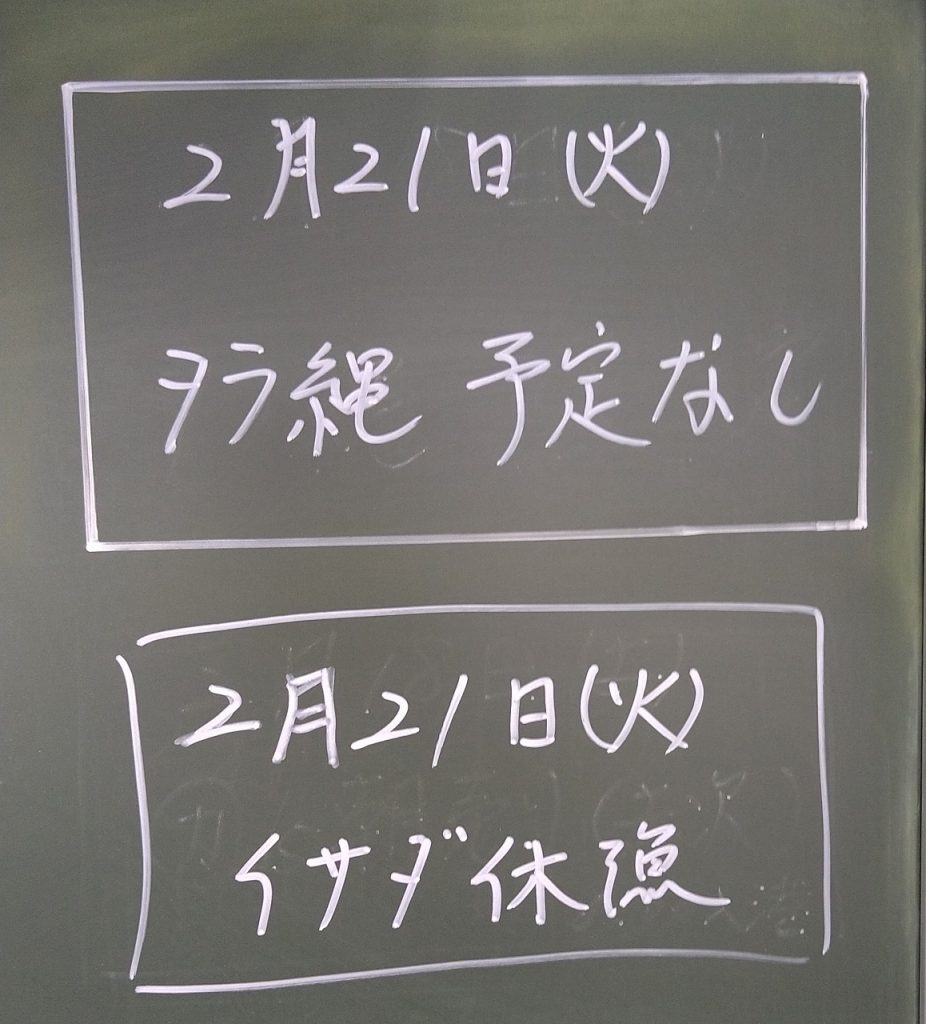 2月21日(火)
タラ縄 予定なし
2月21日(火)
イサダ休漁